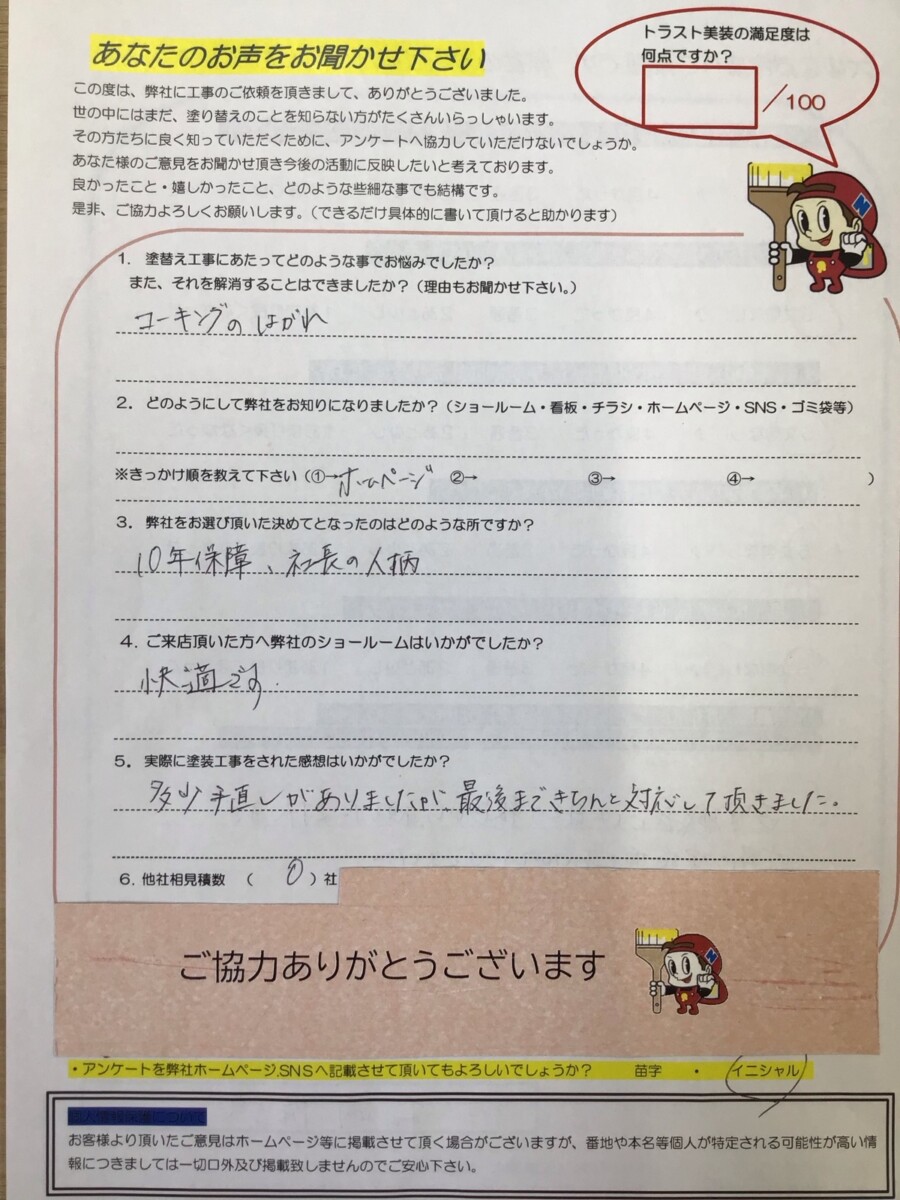 あなたのお声をお聞かせ下さい
トラスト美装の満足度は
何点ですか？
／100
この度は、弊社に工事のご依頼を頂きまして、ありがとうございました。
世の中にはまだ、塗り替えのことを知らない方がたくさんいらっしゃいます。
その方たちに良く知っていただくために、アンケートへ協力していただけないでしょうか。
あなた様のご意見をお聞かせ頂き今後の活動に反映したいと考えております。
良かったこと・嬉しかったこと、どのような些細な事でも結構です。
是非、ご協力よろしくお願いします。（できるだけ具体的に書いて頂けると助かります）
1．塗替え工事にあたってどのような事でお悩みでしたか？
また、それを解消することはできましたか？（理由もお聞かせ下さい。）
コーキングのはがれ
2．どのようにして弊社をお知りになりましたか？（ショールーム・看板・チラシ・ホームページ・SNS・ゴミ袋等）
※きっかけ順を教えて下さい（①→ホームページ ②→ ③→ ④→ ）
3．弊社をお選び頂いた決めてとなったのはどのような所ですか？
10年保障、社長の人柄
4．ご来店頂いた方へ弊社のショールームはいかがでしたか？
快適です.
5．実際に塗装工事をされた感想はいかがでしたか？
多少手直しがありましたが、最後まできちんと対応して頂きました。
6．他社相見積数 （ 0 ）社
ご協力ありがとうございます
・アンケートを弊社ホームページ,SNSへ記載させて頂いてもよろしいでしょうか？ 苗字 ・ イニシャル
個人情報保護について
お客様より頂いたご意見はホームページ等に掲載させて頂く場合がございますが、番地や本名等個人が特定される可能性が高い情
報につきましては一切口外及び掲載致しませんのでご安心下さい。